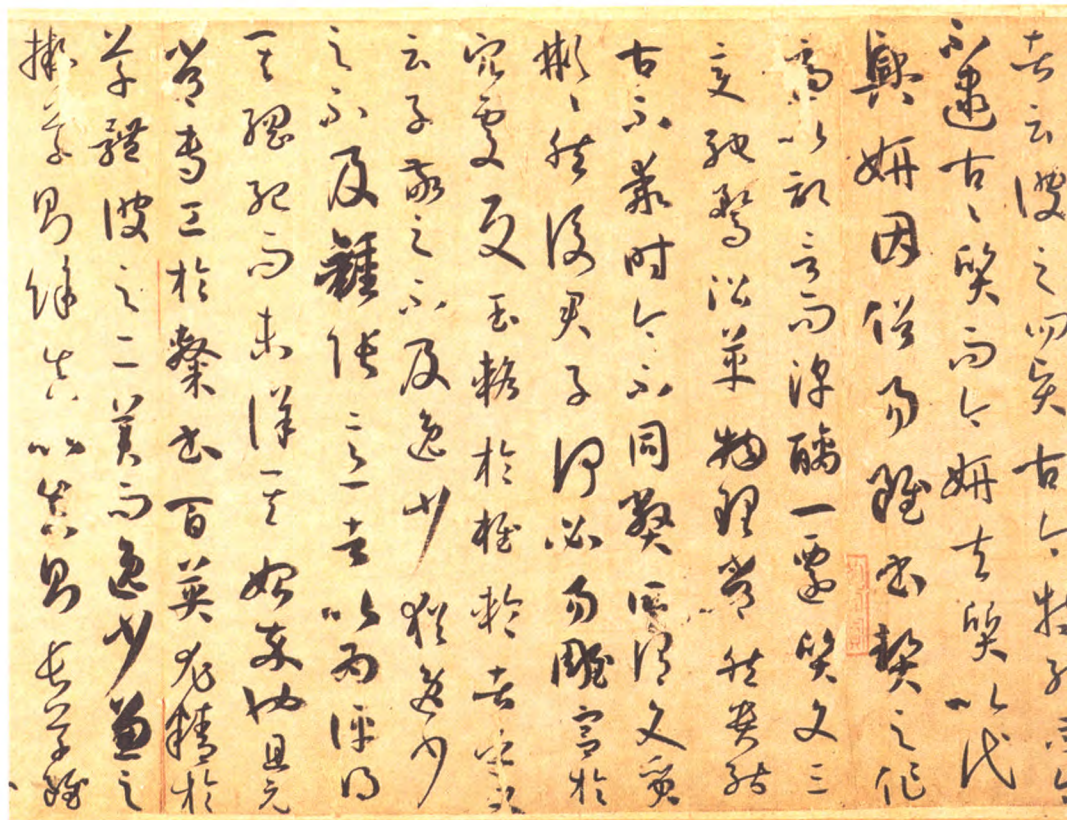 者云彼之四賢古今特絕而今
不逮古古質而今妍夫質以代
興妍因俗易雖書契之作
適以記言而淳醨一遷質文三
變馳騖沿革物理常然貴能
古不乖時今不同弊所謂文質
彬彬然後君子何必易雕宮於
穴處反玉輅於椎輪者乎又
云子敬之不及逸少猶逸少
之不及鍾張意者以為評得
其綱紀而未詳其始卒也且元
常專工於隸書百英尤精於
草體彼之二美而逸少兼之
擬草則餘真比真則長草雖